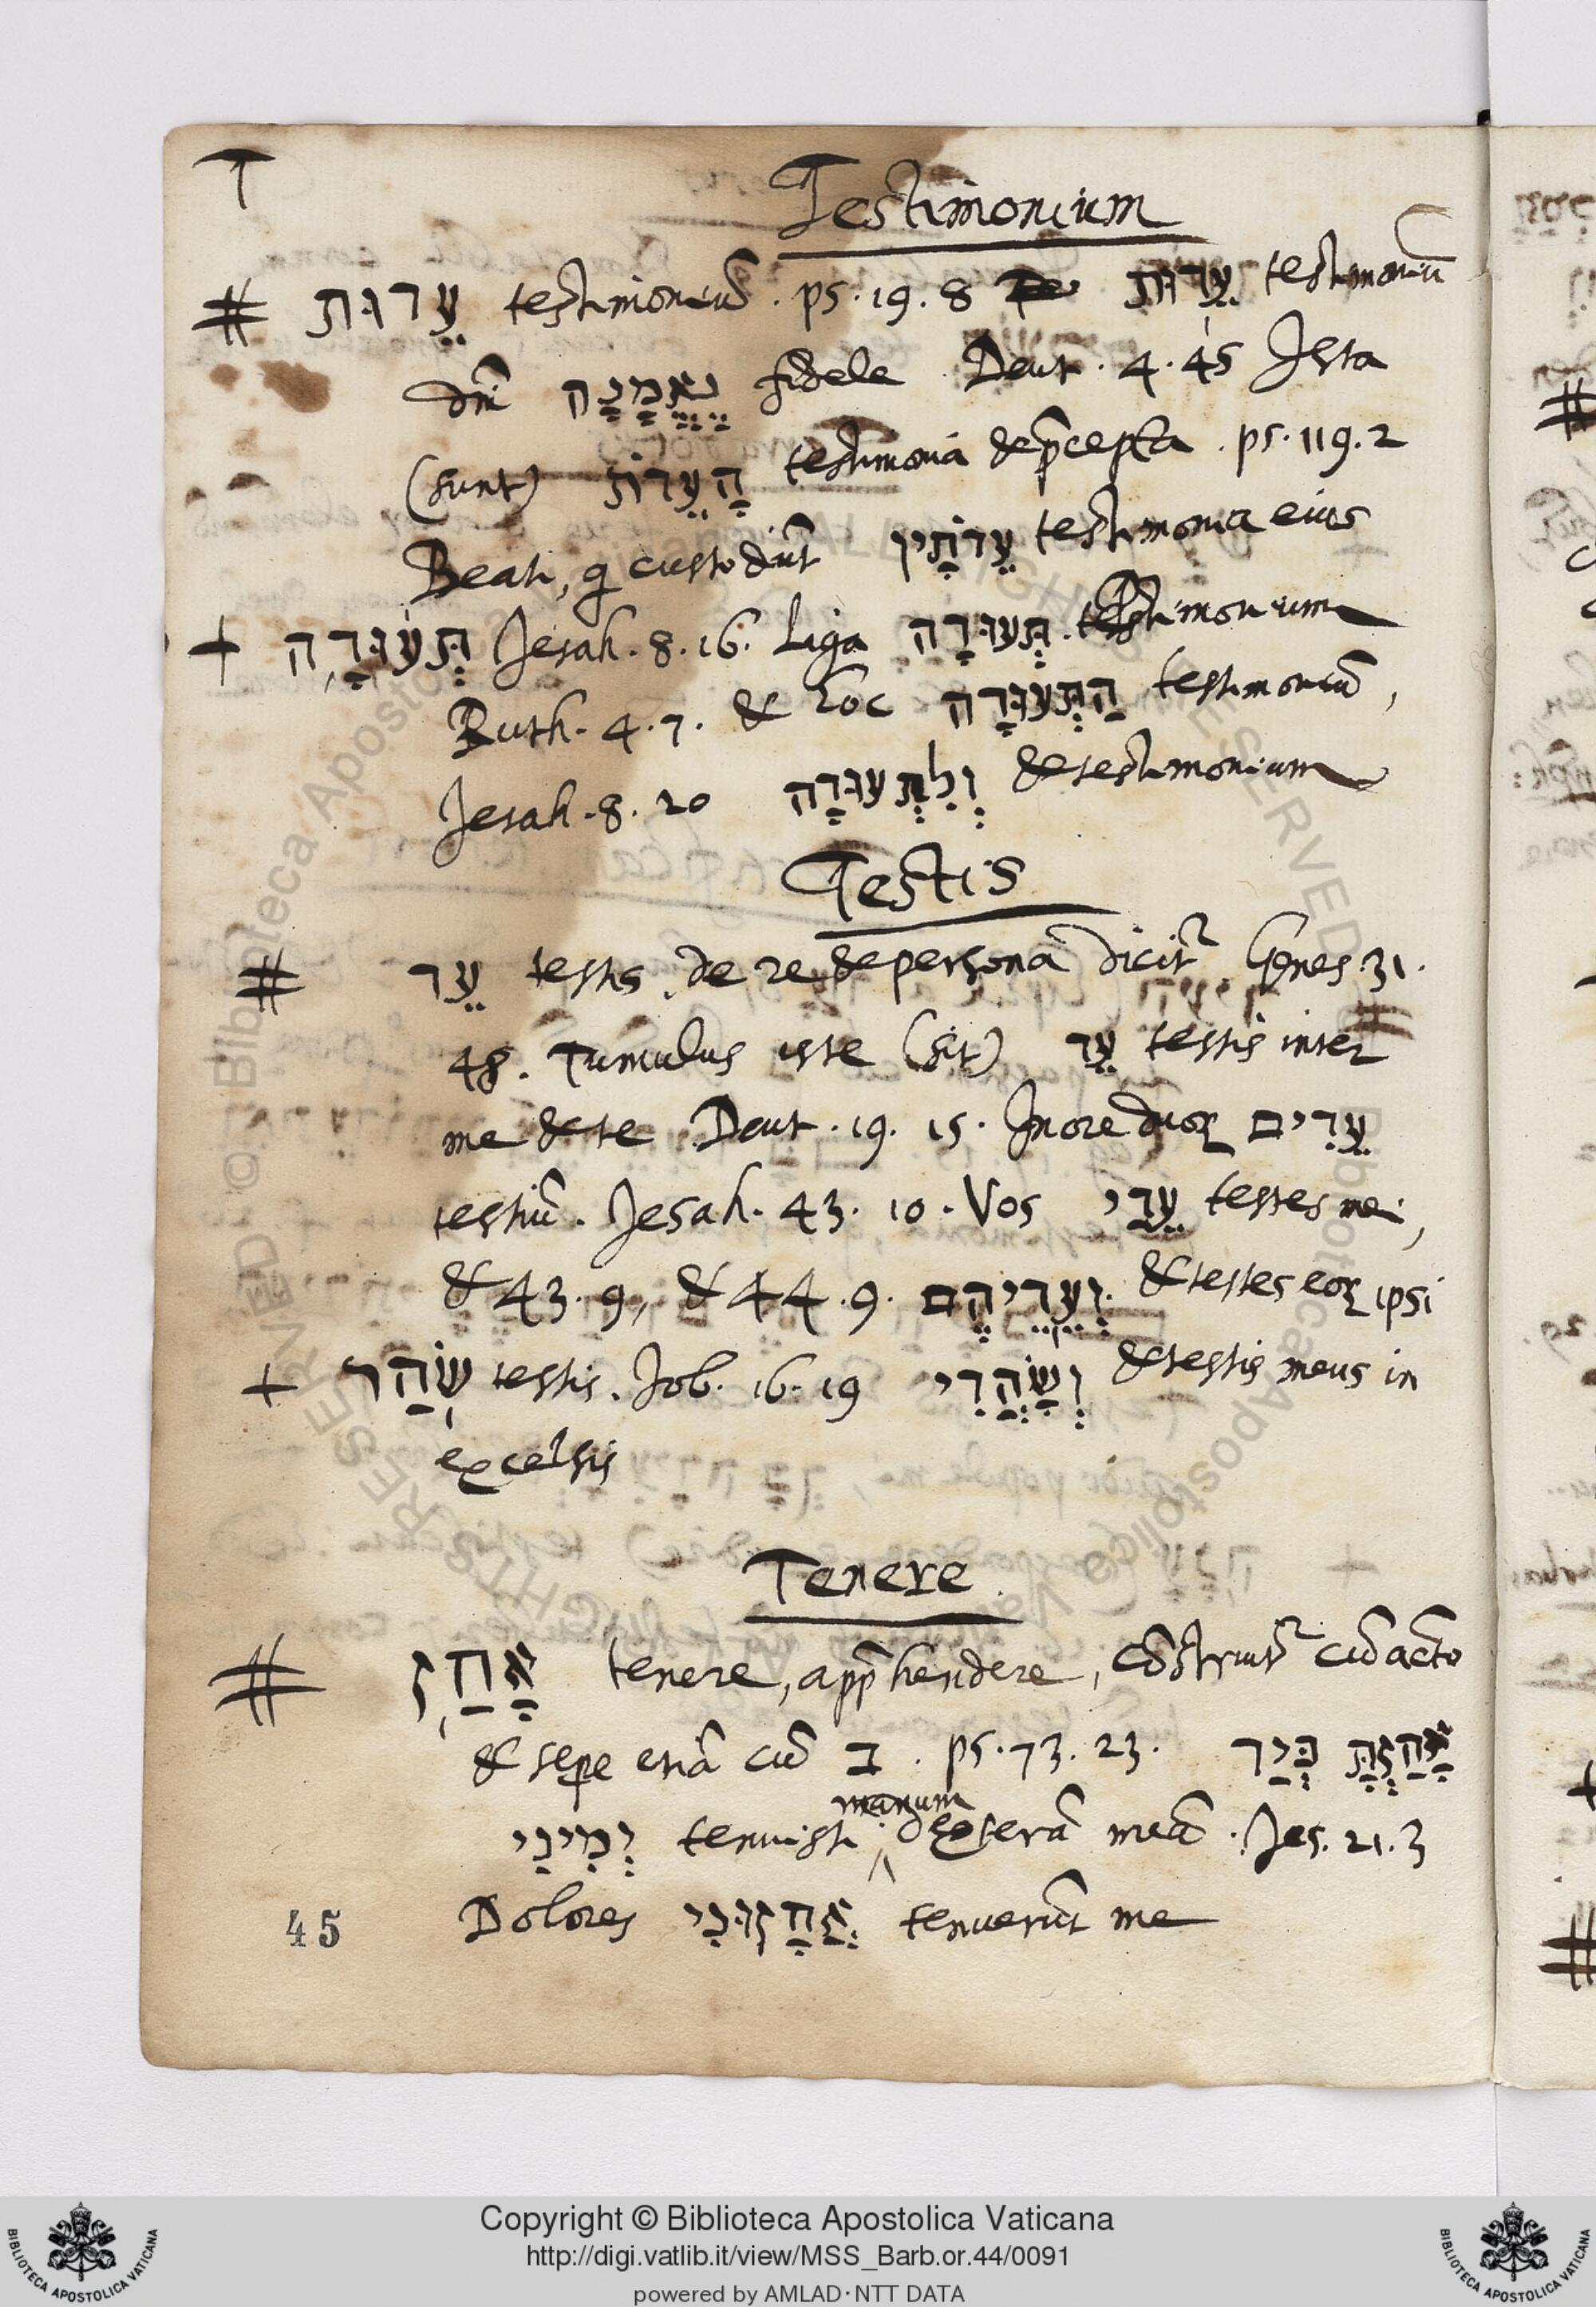 T
Testimonium
# עֵדוּת testimoniū . ps . 19 . 8 עֵדוּת testimoniū
dni נֶאֱמָנָה fidele Deut . 4 . 45 Ista
(sunt) הָעֵדוֹת testimonia & pcepta . ps . 119 . 2
Beati, q custodiūt עֵדוֹתָיו testimonia eius
+ תְּעוּדָה Jesah . 8 . 16 . Liga תְּעוּדָה . testimonium
Ruth . 4 . 7 . & hoc הַתְּעוּדָה testimoniū ,
Jesah . 8 . 20 וְלִתְעוּדָה & testimonium
Testis
# עֵד testis . de re & persona dicitr Genes . 31 .
48 . Tumulus iste (sit) עֵד testis inter
me & te Deut . 19 . 15 . In ore duoꝝ עֵדִים
testiū . Jesah . 43 . 10 . Vos עֵדַי testes mei ,
& 43 . 9 , & 44 . 9 . וְעֵדֵיהֶם & testes eoꝝ ipsi
+ שׂהֵד testis . Job . 16 . 19 וְשָׂהֲדִי & testis meus in
excelsis
Tenere
# אָחַז tenere , apphendere , cōstruitr cū acto
& sepe etiā cū ב . ps . 73 . 23 . אָחַזְתָּ בְּיַד
יְמִינִי tenuisti manum dexterā meā . Jes . 21 . 3
45 Dolores אֲחָזוּנִי tenuerūt me
Copyright © Biblioteca Apostolica Vaticana
http://digi.vatlib.it/view/MSS_Barb.or.44/0091
powered by AMLAD · NTT DATA